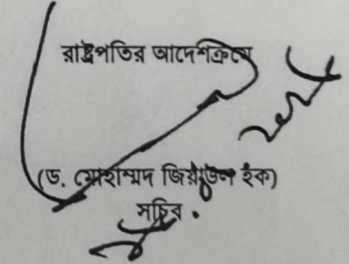 রাষ্ট্রপতির আদেশক্রমে
(ড. মোহাম্মদ জিয়াউল হক)
সচিব